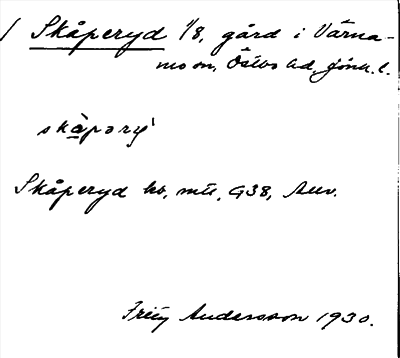 / Skåperyd 1/8, gård i Värna-
mo sn, Östbo hd, Jönk. l.
skàpary̆
Skåperyd by, mtl, G38, Anv.
Fritz Andersson 1930.